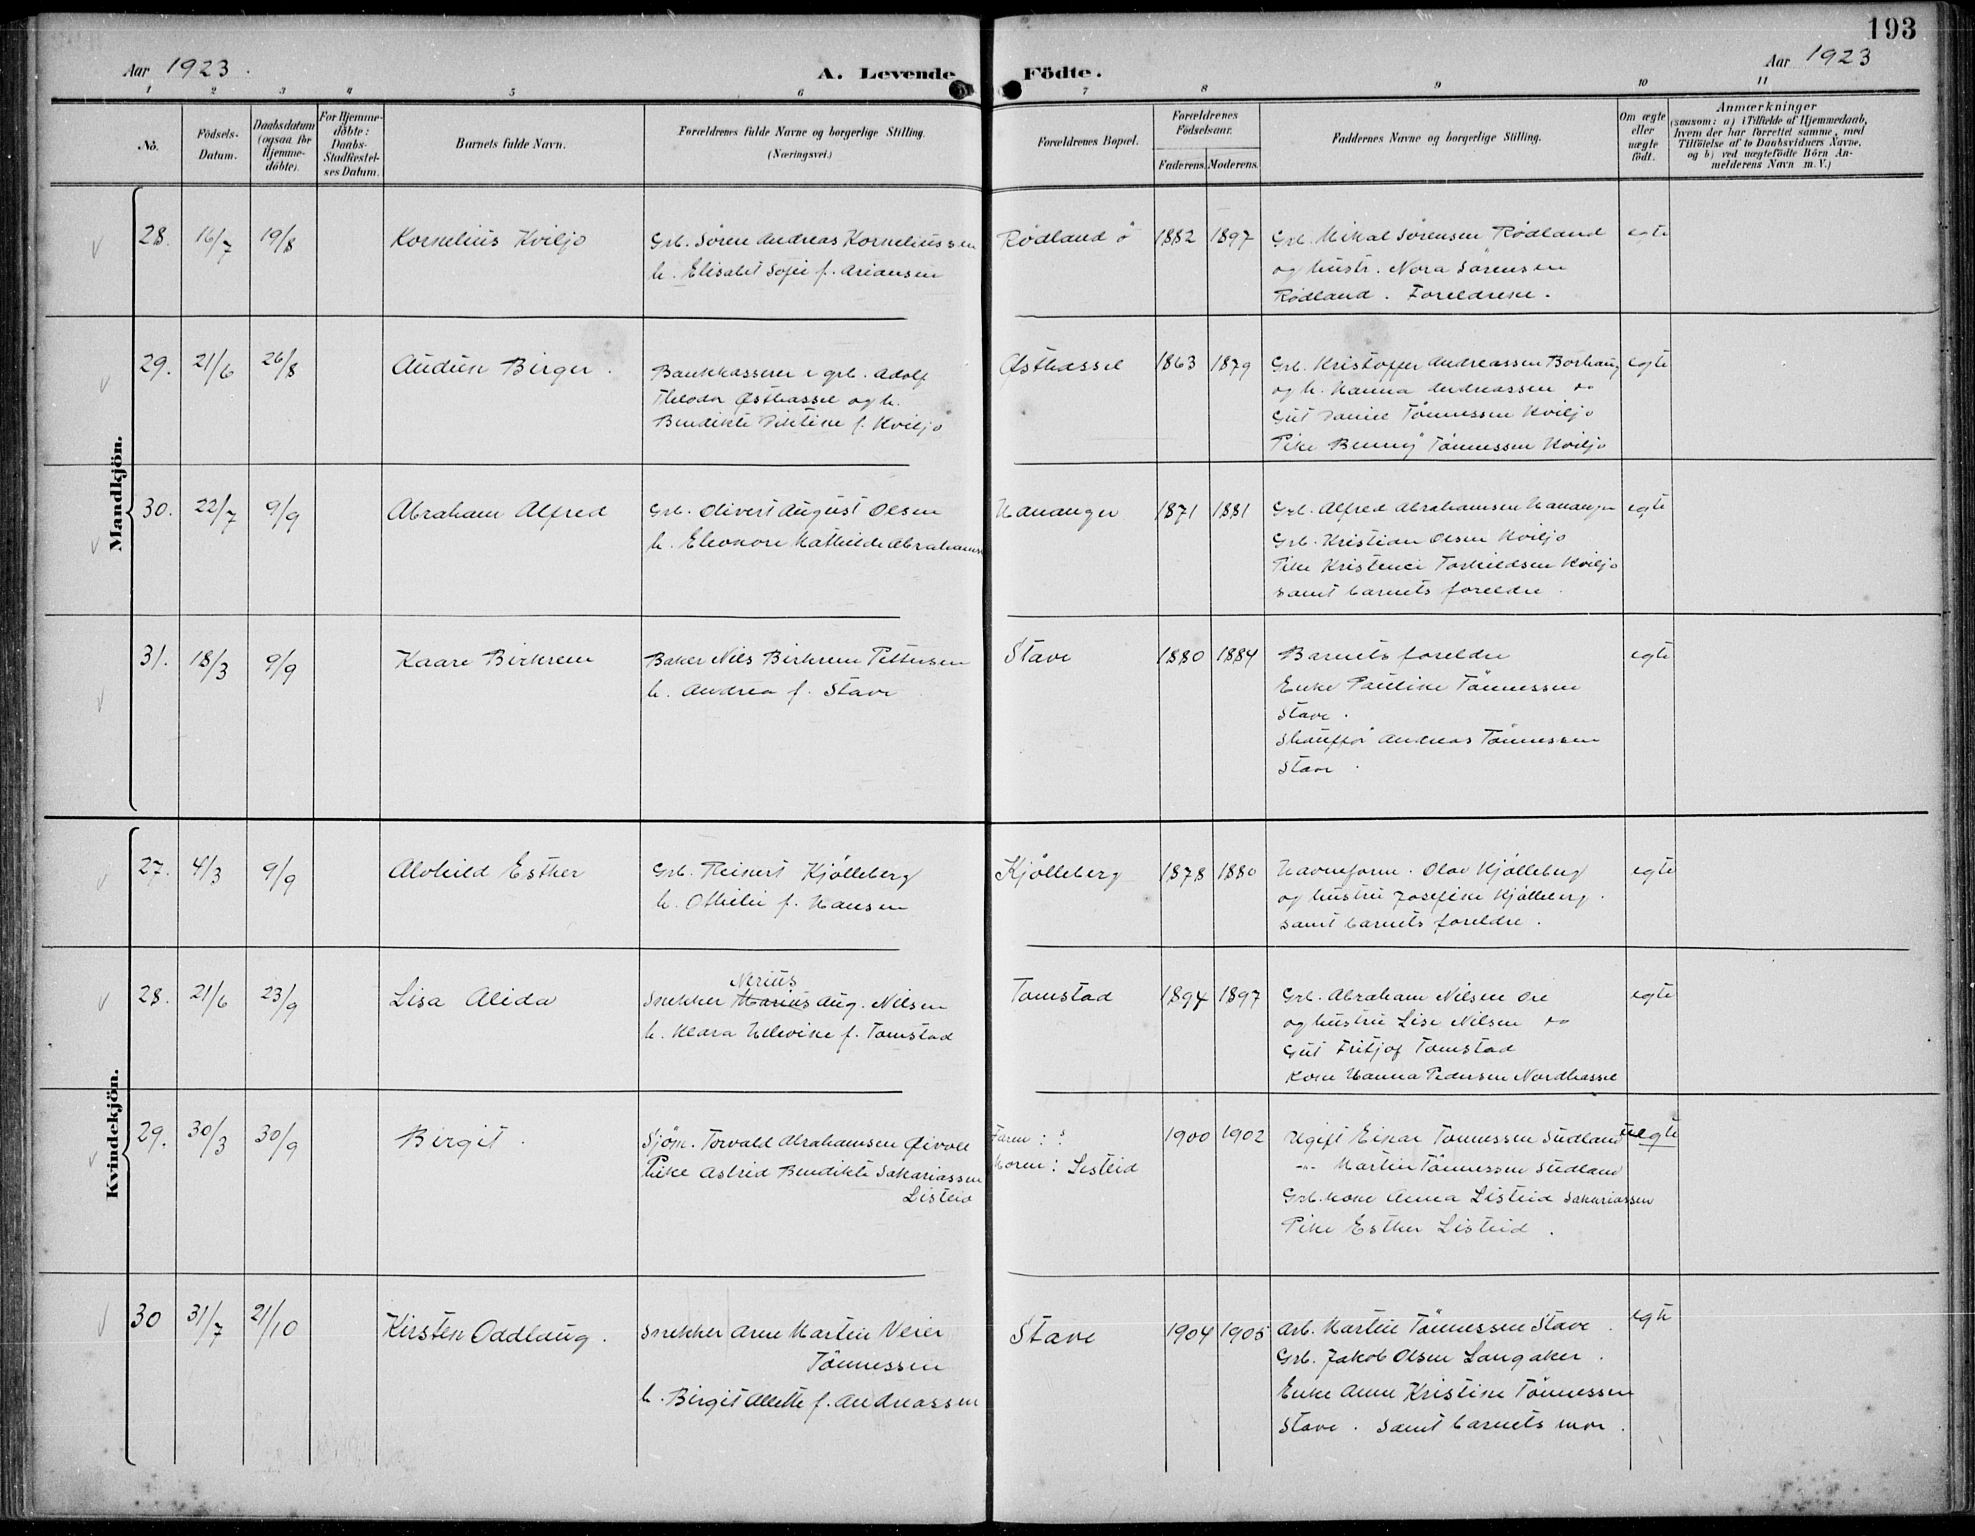 193
Aar 1923.
A. Levende Födte.
Aar 1923
1 2 3 4 5 6 7 8 9 10 11
No.
Födsels-Datum.
Daabsdatum (ogsaa for Hjemme-døbte).
For Hjemme-døbte: Daabs-Stadfæstel-ses Datum.
Barnets fulde Navn.
Forældrenes fulde Navne og borgerlige Stilling. (Næringsvei.)
Forældrenes Bopæl.
Forældrenes Födselsaar.
Faderens. Moderens.
Faddernes Navne og borgerlige Stilling.
Om ægte eller uægte födt.
Anmærkninger
(saasom: a) i Tilfælde af Hjemmedaab,
hvem der har forrettet samme, med
Tilföielse af to Daabsvidners Navne,
og b) ved uægtefödte Börn An-
melderens Navn m. V.)
Mandkjön.
28. 16/7 19/8 Kornelius Kviljo
Grb. Søren Andreas Korneliussen
h. Elisabet Sofie f. Ariansen
Rødland ö 1882 1897
Grb. Mikal Sørensen Rødland
og hustr. Nora Sørensen
Rødland. Foreldrene.
egte
29. 21/6 26/8 Audun Birger.
Bankkasserer i grb. Adolf
Theodor Østhassel og h.
Bendikte f. Kviljo
Østhassel 1863 1879
Grb. Kristoffer Andreassen Borhaug
og h. Hanna Andreassen
Gut Daniel Tönnessen Kviljo
Pike Benny Tönnessen Kviljo
egte
30. 22/7 9/9 Abraham Alfred
Grb. Olivert August Olsen
h. Eleonore Mathilde Abrahams
Hananger 1871 1881
Grb. Alfred Abrahamsen Hananger
Grb. Kristian Olsen Kviljo
Pike Torkildsen Kviljo
samt barnets foreldre.
egte
31. 18/3 9/9 Kaare Birkrem
Baker Nils Birkrem Pettersen
h. Andrea f. Stave
Stave 1880 1884
Barnets foreldre
Enke Pauline Tönnessen
Stave.
Andreas Tönnessen
Stave.
egte
Kvindekjön.
27. 4/3 9/9 Alvhild Esther
Grb. Reinert Kjölleberg
h. Othilie f. Hansen
Kjölleberg 1878 1880
Havneform. Olav Kjölleberg
og hustru Josefine Kjölleberg.
samt barnets foreldre.
egte
28. 21/6 23/9 Lisa Alida
Nerius
Snekker Marius Aug. Nilsen
h. Klara Helevine f. Tomstad
Tomstad 1894 1897
Grb. Abraham Nilsen Ore
og hustru Lise Nilsen
Gut Fritjof Tomstad
Kone Hanna Pedersen Nordhassel
egte
29. 30/3 30/9 Birgit.
Sjöm. Torvald Abrahamsen Öivoll
Pike Astrid Bendikte Sakariassen
Listeid
Faren: ?
Moren: Listeid
1900 1902
Ugift Einar Tönnessen Sudland
-"- Martin Tönnessen Sudland
Grb.kone Anna Listeid Sakariassen
Pike Esther Listeid.
uegte
30 31/7 21/10 Kirsten Oddlaug.
Snekker Arne Martin Meier
Tönnessen
h. Birgit Alette f. Andreassen
Stave 1904 1905
Arb. Martin Tönnessen Stave.
Grb. Jakob Olsen Langaker.
Enke Anne Kristine Tönnessen
Stave. Samt barnets mor.
egte